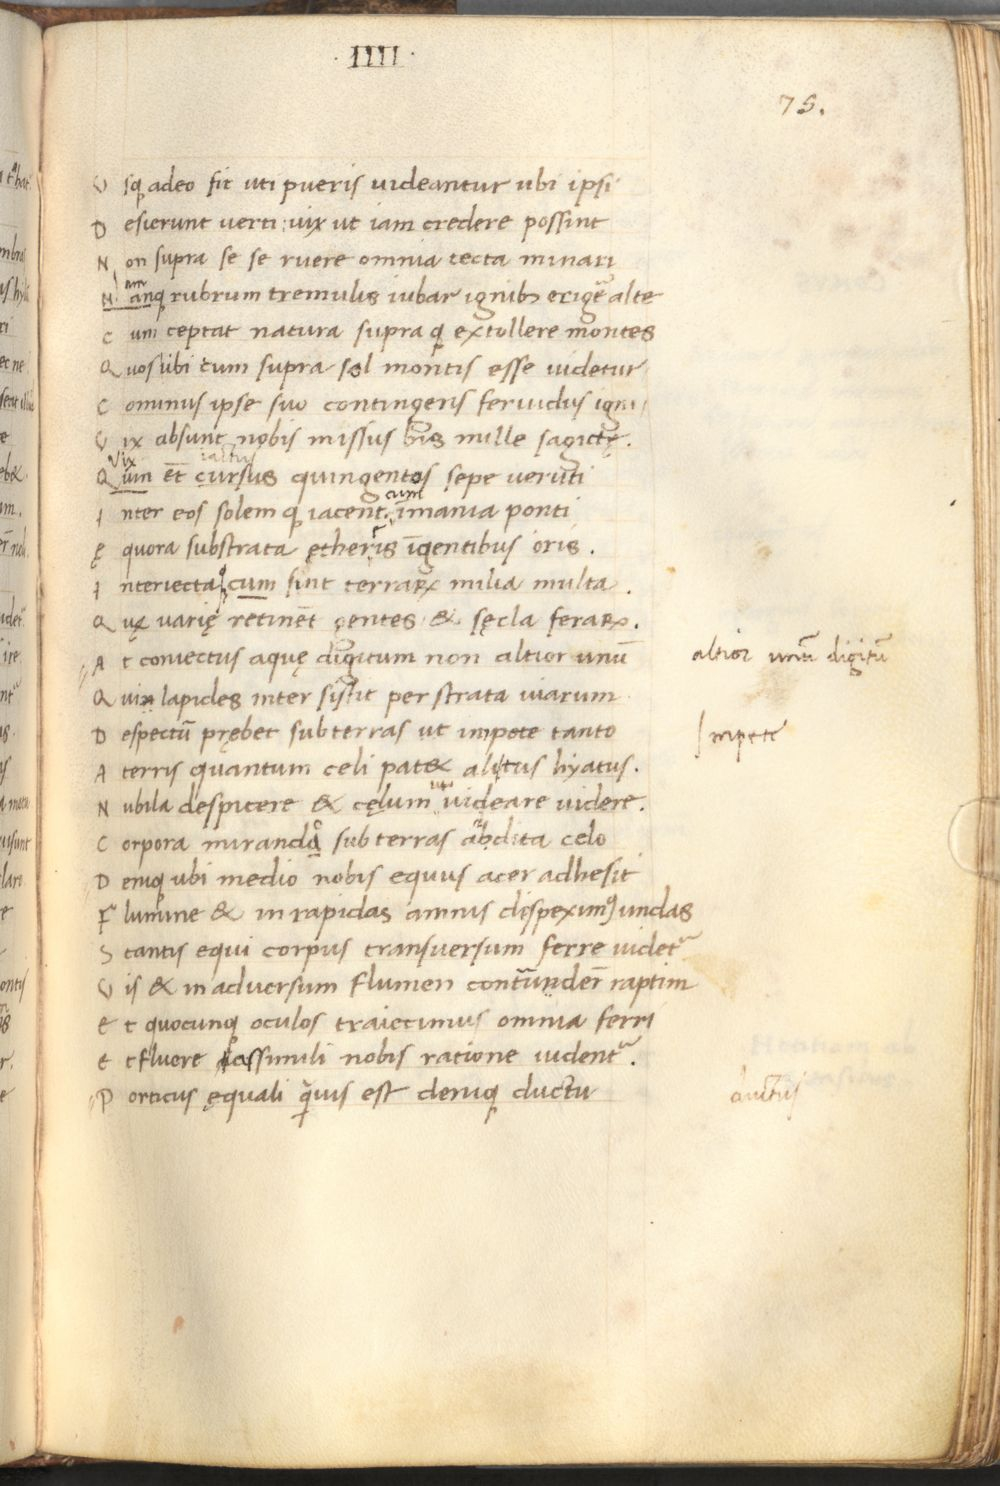 · IIII ·
75.
V sq adeo fit uti pueris uideantur ubi ipsi
D esierunt verti : uix ut iam credere possint
N on supra se se ruere omnia tecta minari
N anq rubrum tremulis iubar ignib; erigẽ alte
C um ceptat natura supra q; extollere montes
Q uos tibi tum supra sol montis esse uidetur
C ominus ipse suo contingens feruidus igni
V ix absunt nobis missus bis mille sagictę.
Vix iactus
Q uin ẽt cursus quingentos sepe veruti
I nter eos solem q; iacent. cum ĩmania ponti
Ę quora substrata ętheris ĩgentibus oris .
I nteriecta q; cum sint terraꝝ milia multa .
Q uę varię retinẽt gentes & sęcla feraꝝ.
A t coniectus aquę digitum non altior unũ altior unũ digitũ
Q uin lapides inter sistit per strata uiarum
D espectũ prębet sub terras ut impete tanto Impete
A terris quantum celi pat& alitus hyatus.
N ubila despicere & cęlum uideare videre.
C orpora mirando sub terras abdita celo
D eniq ubi medio nobis equus acer adhesit
F lumine & in rapidas amnis despeximꝰ undas
S tantis equi corpus transversum ferre uidet᷑
V is & in adversum flumen contrudere raptim
E t quocunq oculos traiecimus omnia ferri
E t fluere assimili nobis ratione uident᷑.
P orticus ęquali q̃uis est deniq ductu ductus